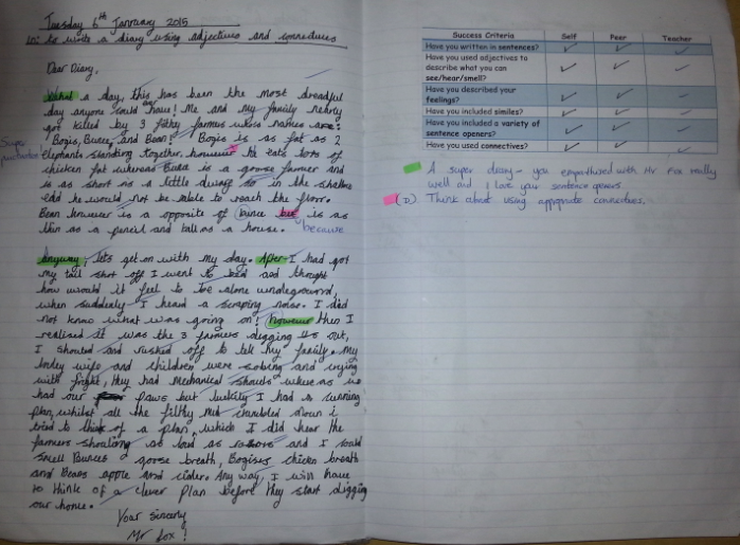 Tuesday 6th January 2015
LC: to write a diary using adjectives and connectives
Dear Diary,
What a day, this has been the most dreadful
day anyone could have! Me and my family nearly
got killed by 3 filthy farmers whos names are:
"Bogis, Bunce, and Bean!" Bogis is as fat as 2
elephants standing together, however he eats lots of
chicken fat whereas Bunce is a goose farmer and
is as short as a little dwarf so in the shallow
edd he would not be able to reach the floor.
Bean however is a opposite of bince but is as
thin as a pencil and tall as a house.
because
Super
Anyway, lets get on with my day. After I had got
my tail shot off I went to bed and thought
how would it feel to be alone undeground,
when suddenly I heard a scraping noise. I did
not know what was going on! however then I
realised it was the 3 farmers digging us out,
I shouted and rushed off to tell my family. My
lovley wife and children were sobing and crying
with fright, they had mechanical shouels where as we
had our paws but luckily I had a cunning
plan, whilst all the filthy mud crumbled down i
tried to think of a plan, which I did hear the
farmers shouting as loud as and I could
smell Bunces goose breath, Bogises chicken breath
and Beans apple and cider. Any way, I will have
to think of a clever plan before they start digging
our home.
Your sincerly
Mr Fox!
Success Criteria Self Peer Teacher
Have you written in sentences?
Have you used adjectives to
describe what you can
see/hear/smell?
Have you described your
feelings?
Have you included similes?
Have you included a variety of
sentence openers?
Have you used connectives?
A super diary - you empathised with Mr Fox really
well and I love your sentence openers.
Think about using appropriate connectives.